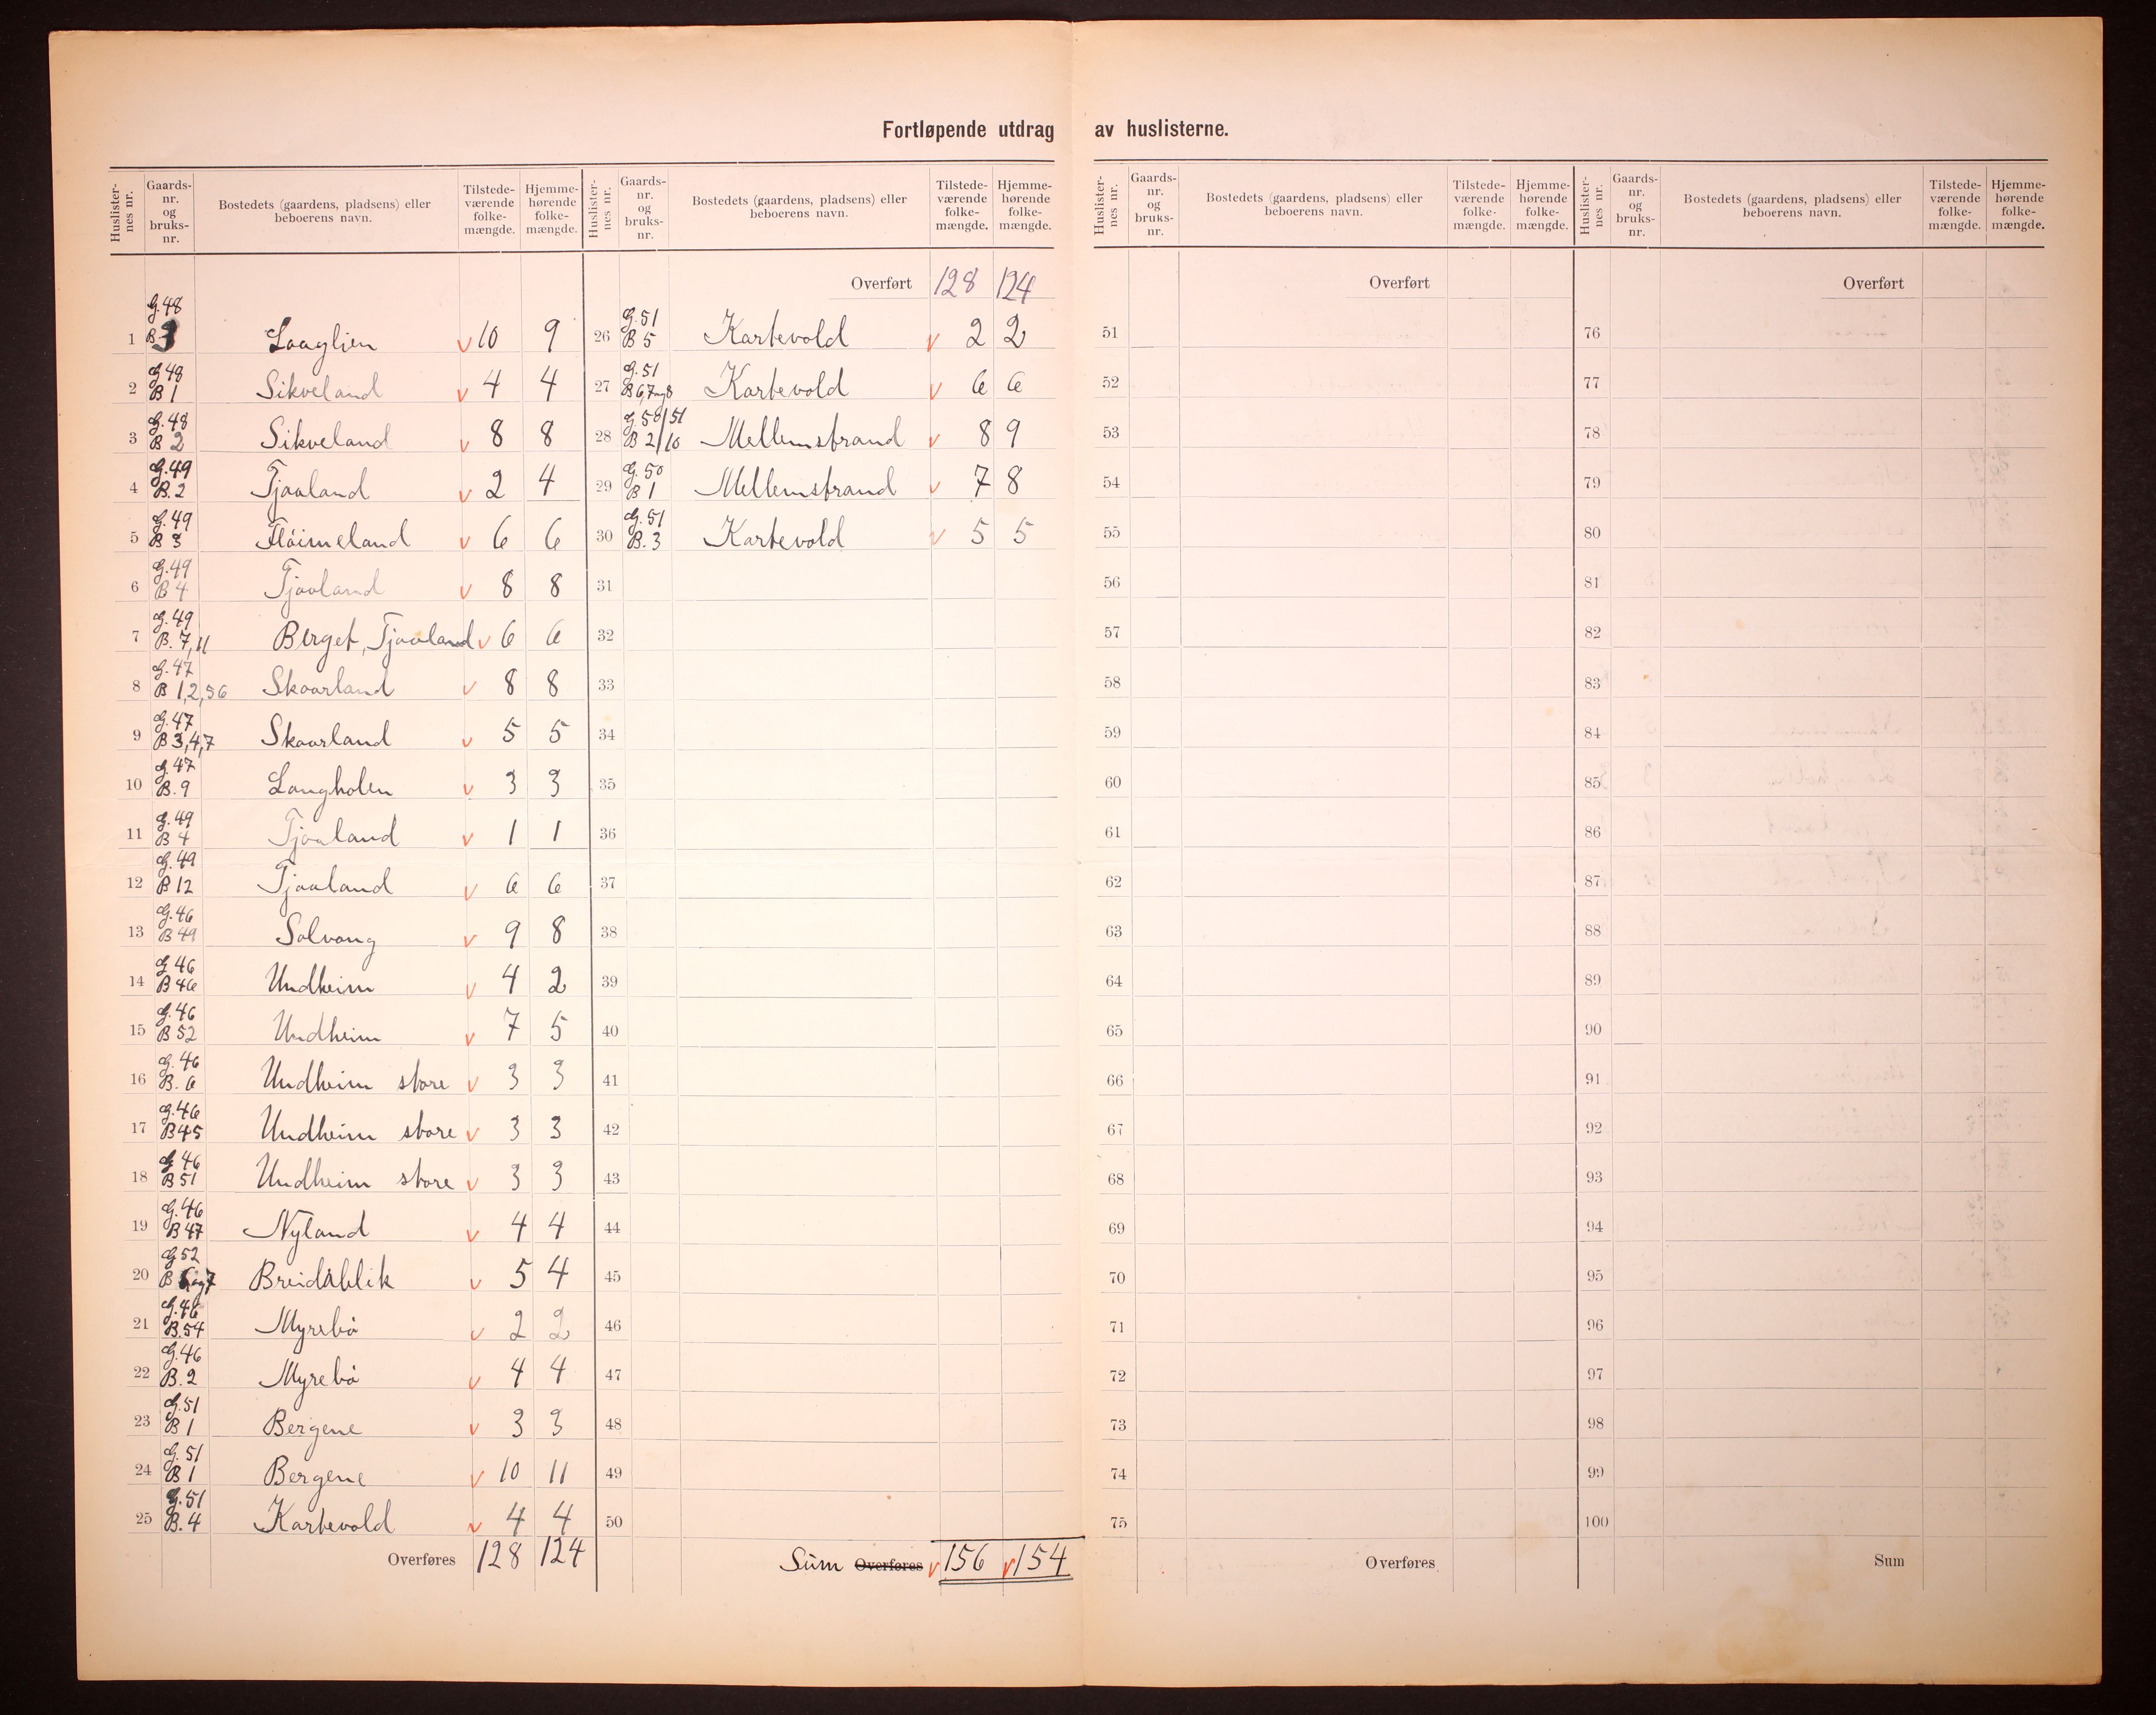 Fortløpende utdrag av huslisterne.
Huslister-nes nr. Gaards-nr. og bruks-nr. Bostedets (gaardens, pladsens) eller beboerens navn. Tilstede-værende folke-mængde. Hjemme-hørende folke-mængde.
1 G.48 B.3 Laaglien v 10 9
2 G 48 B 1 Sikveland v 4 4
3 G.48 B 2 Sikveland v 8 8
4 G.49 B.2 Tjaaland v 2 4
5 G.49 B 3 Fløimeland v 6 6
6 G.49 B 4 Tjaaland v 8 8
7 G.49 B.7,11 Berget, Tjaaland v 6 6
8 G.47 B 1,2,56 Skaarland v 8 8
9 G.47 B 3,4,7 Skaarland v 5 5
10 G.47 B.9 Langholen v 3 3
11 G.49 B 4 Tjaaland v 1 1
12 G.49 B 12 Tjaaland v 6 6
13 G.46 B 49 Solvang v 9 8
14 G 46 B 46 Undheim v 4 2
15 G.46 B 52 Undheim v 7 5
16 G.46 B.6 Undheim store v 3 3
17 G.46 B 45 Undheim store v 3 3
18 G 46 B 51 Undheim store v 3 3
19 G.46 B 47 Nyland v 4 4
20 G 52 B 6 og 7 Breidablik v 5 4
21 G.46 B.54 Myrebø v 2 2
22 G.46 B.2 Myrebø v 4 4
23 G.51 B 1 Bergene v 3 3
24 G.51 B 1 Bergene v 10 11
25 G.51 B.4 Kartevold v 4 4
Overføres 128 124
Huslister-nes nr. Gaards-nr. og bruks-nr. Bostedets (gaardens, pladsens) eller beboerens navn. Tilstede-værende folke-mængde. Hjemme-hørende folke-mængde.
Overført 128 124
26 G.51 B 5 Kartevold v 2 2
27 G.51 B 6,7 og 8 Kartevold v 6 6
28 G 50/51 B 2/10 Mellemstrand v 8 9
29 G.50 B 1 Mellemstrand v 7 8
30 G.51 B.3 Kartevold v 5 5
31
32
33
34
35
36
37
38
39
40
41
42
43
44
45
46
47
48
49
50
Sum Overføres v 156 v 154
Huslister-nes nr. Gaards-nr. og bruks-nr. Bostedets (gaardens, pladsens) eller beboerens navn. Tilstede-værende folke-mængde. Hjemme-hørende folke-mængde.
Overført
51
52
53
54
55
56
57
58
59
60
61
62
63
64
65
66
67
68
69
70
71
72
73
74
75
Overføres
Huslister-nes nr. Gaards-nr. og bruks-nr. Bostedets (gaardens, pladsens) eller beboerens navn. Tilstede-værende folke-mængde. Hjemme-hørende folke-mængde.
Overført
76
77
78
79
80
81
82
83
84
85
86
87
88
89
90
91
92
93
94
95
96
97
98
99
100
Sum